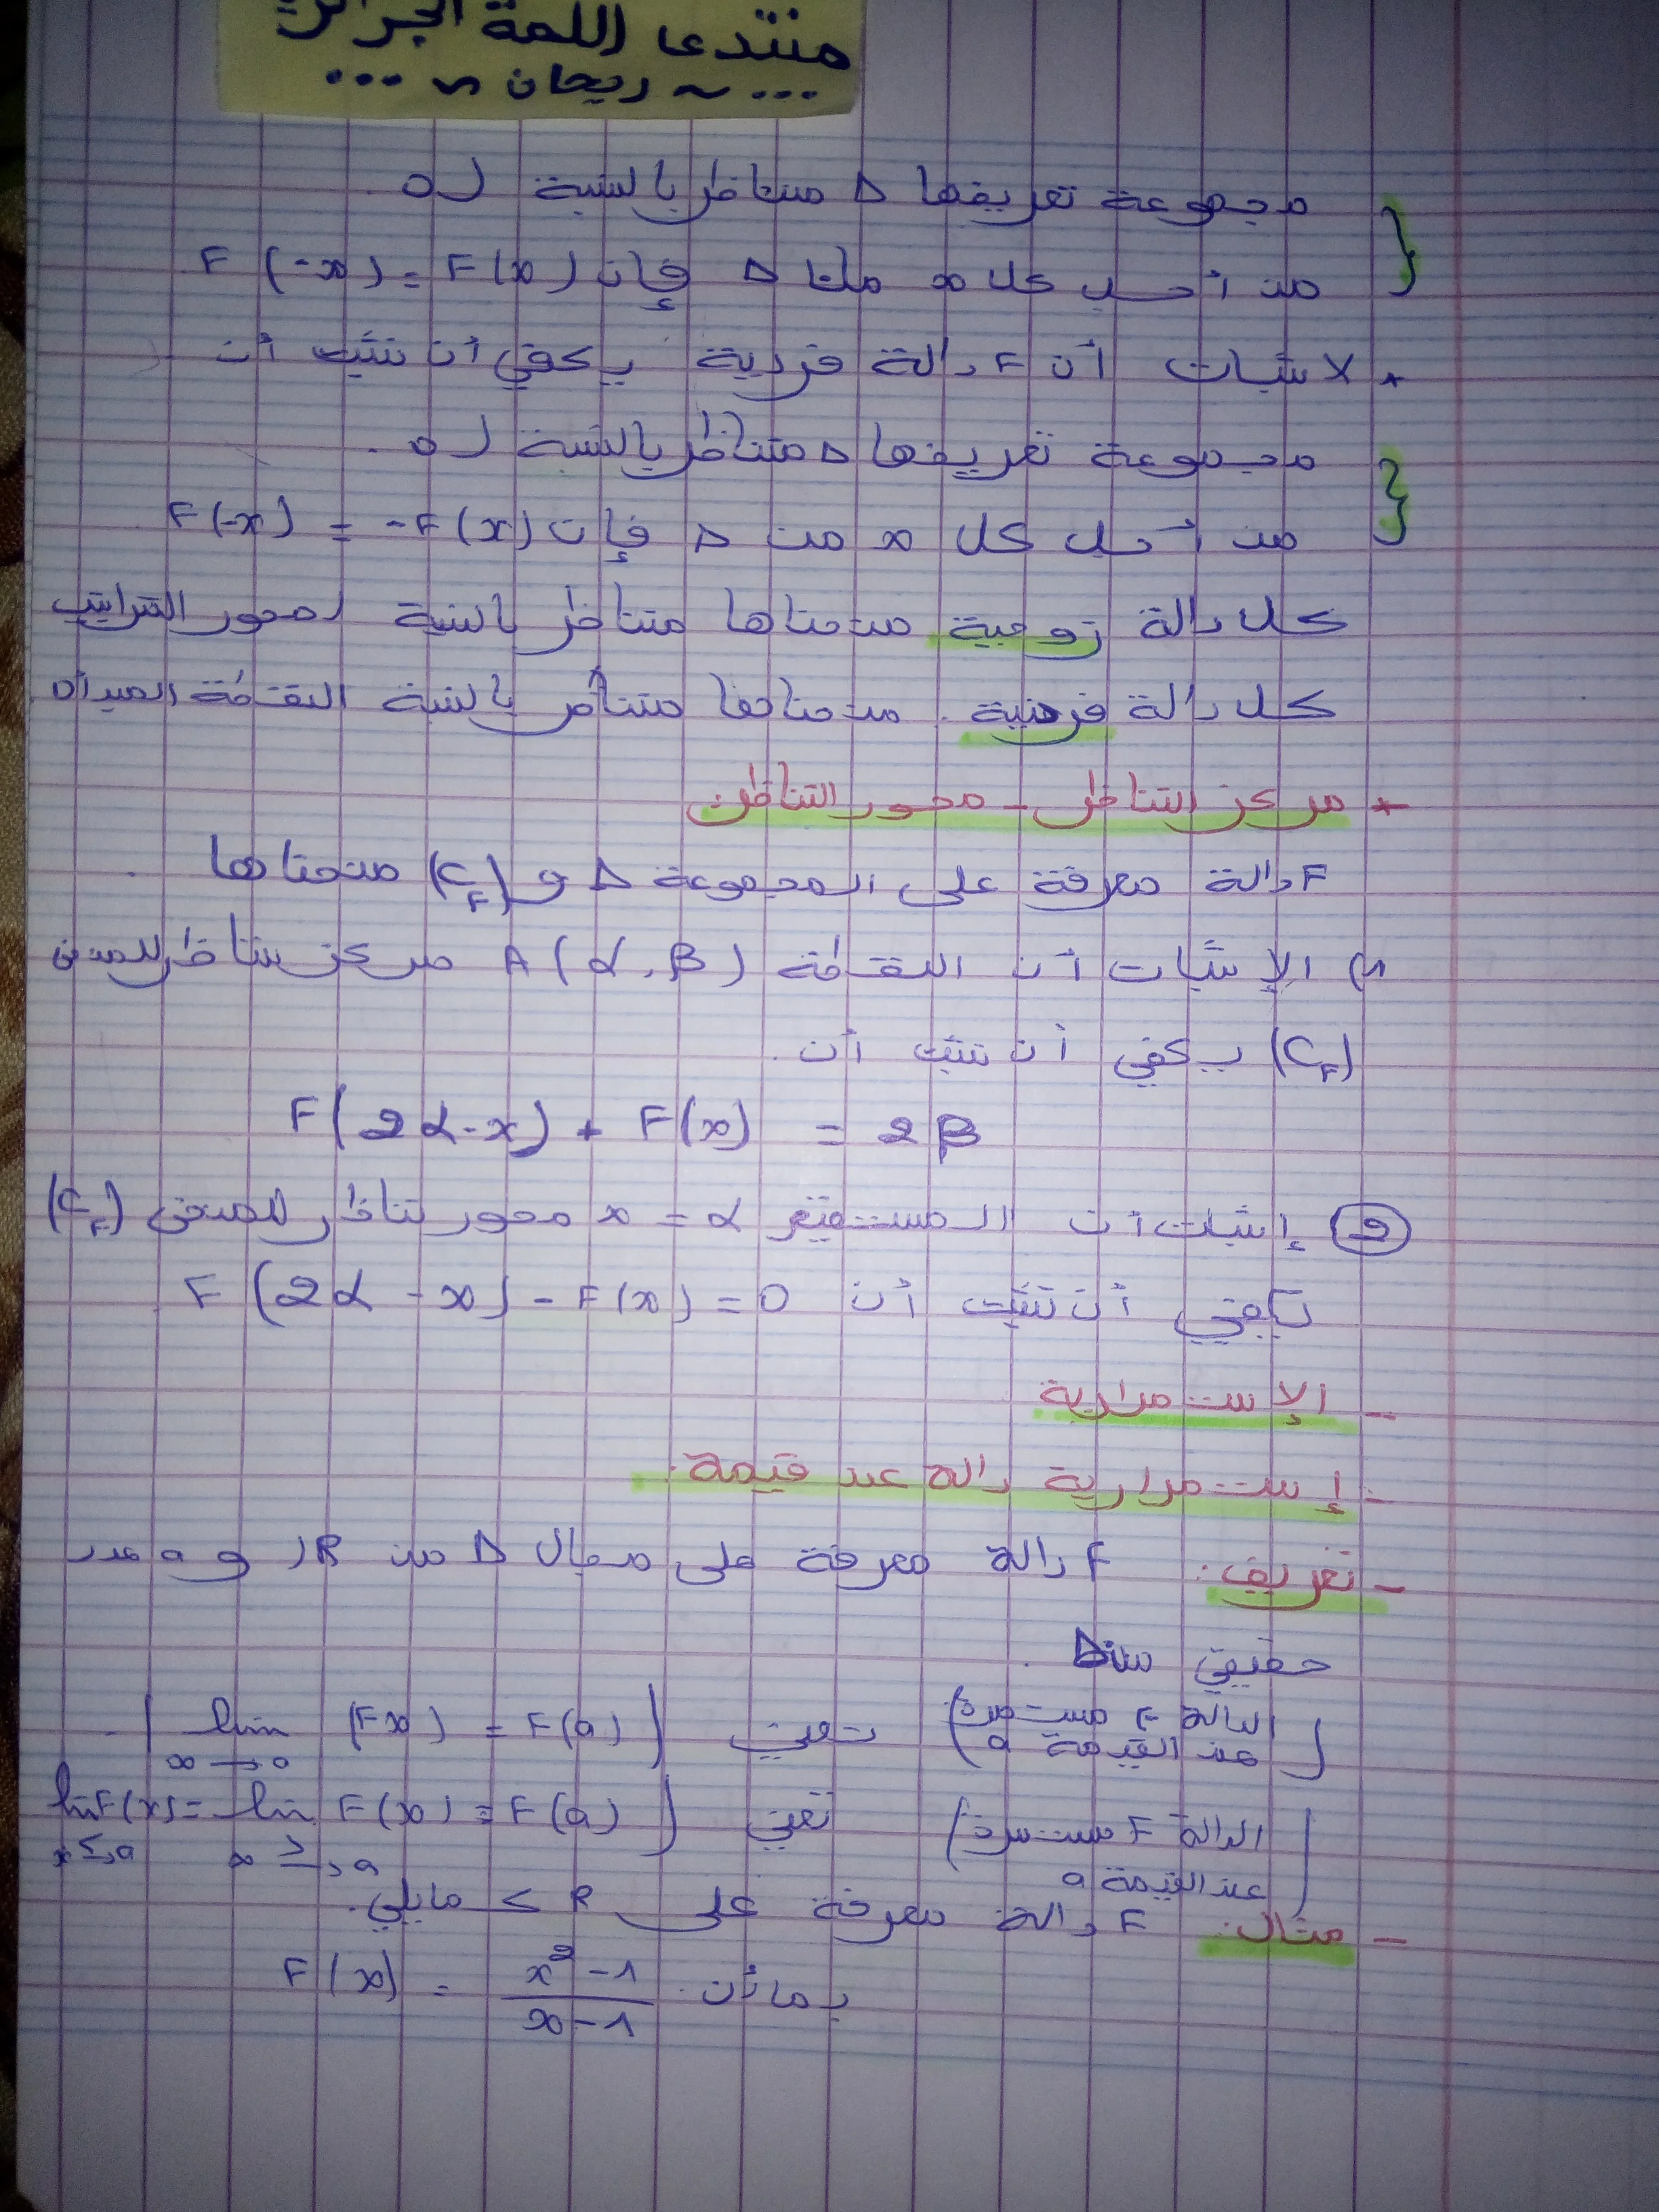 منتدى اللمة الجزائرية
... ~ ريحان ~ ...
مجموعة تعريفها D متناظر بالنسبة لـ 0.
من أجل كل x من D فإن F(-x) = F(x)
* لاثبات أن F دالة فردية يكفي أن نثبت أن
مجموعة تعريفها D متناظر بالنسبة لـ 0.
من أجل كل x من D فإن F(-x) = -F(x)
كل دالة زوجية منحناها متناظر بالنسبة لمحور التراتيب
كل دالة فردية منحناها متناظر بالنسبة النقطة المبدأ 0
* مركز التناظر - محور التناظر:
F دالة معرفة على المجموعة D و (C_F) منحناها.
1) الإثبات أن النقطة A(α, β) مركز تناظر للمنحنى
(C_F) يكفي أن نثبت أن.
F(2α-x) + F(x) = 2β
2 إثبات أن المستقيم x = α محور تناظر للمنحنى (C_F)
يكفي أن نثبت أن F(2α - x) - F(x) = 0
- الإستمرارية
- إستمرارية دالة عند قيمة:
- تعريف: F دالة معرفة على مجال D من R و a عدد
حقيقي من D.
(الدالة F مستمرة عند القيمة a) تعني (lim (Fx) = F(a))
x → a
(الدالة F مستمرة عند القيمة a) تعني (lim F(x) = lim F(x) = F(a)
x ≥→ a x ≤→ a
- مثال: F دالة معرفة على R كمايلي.
بما أن F(x) = (x² - 1)/(x - 1)